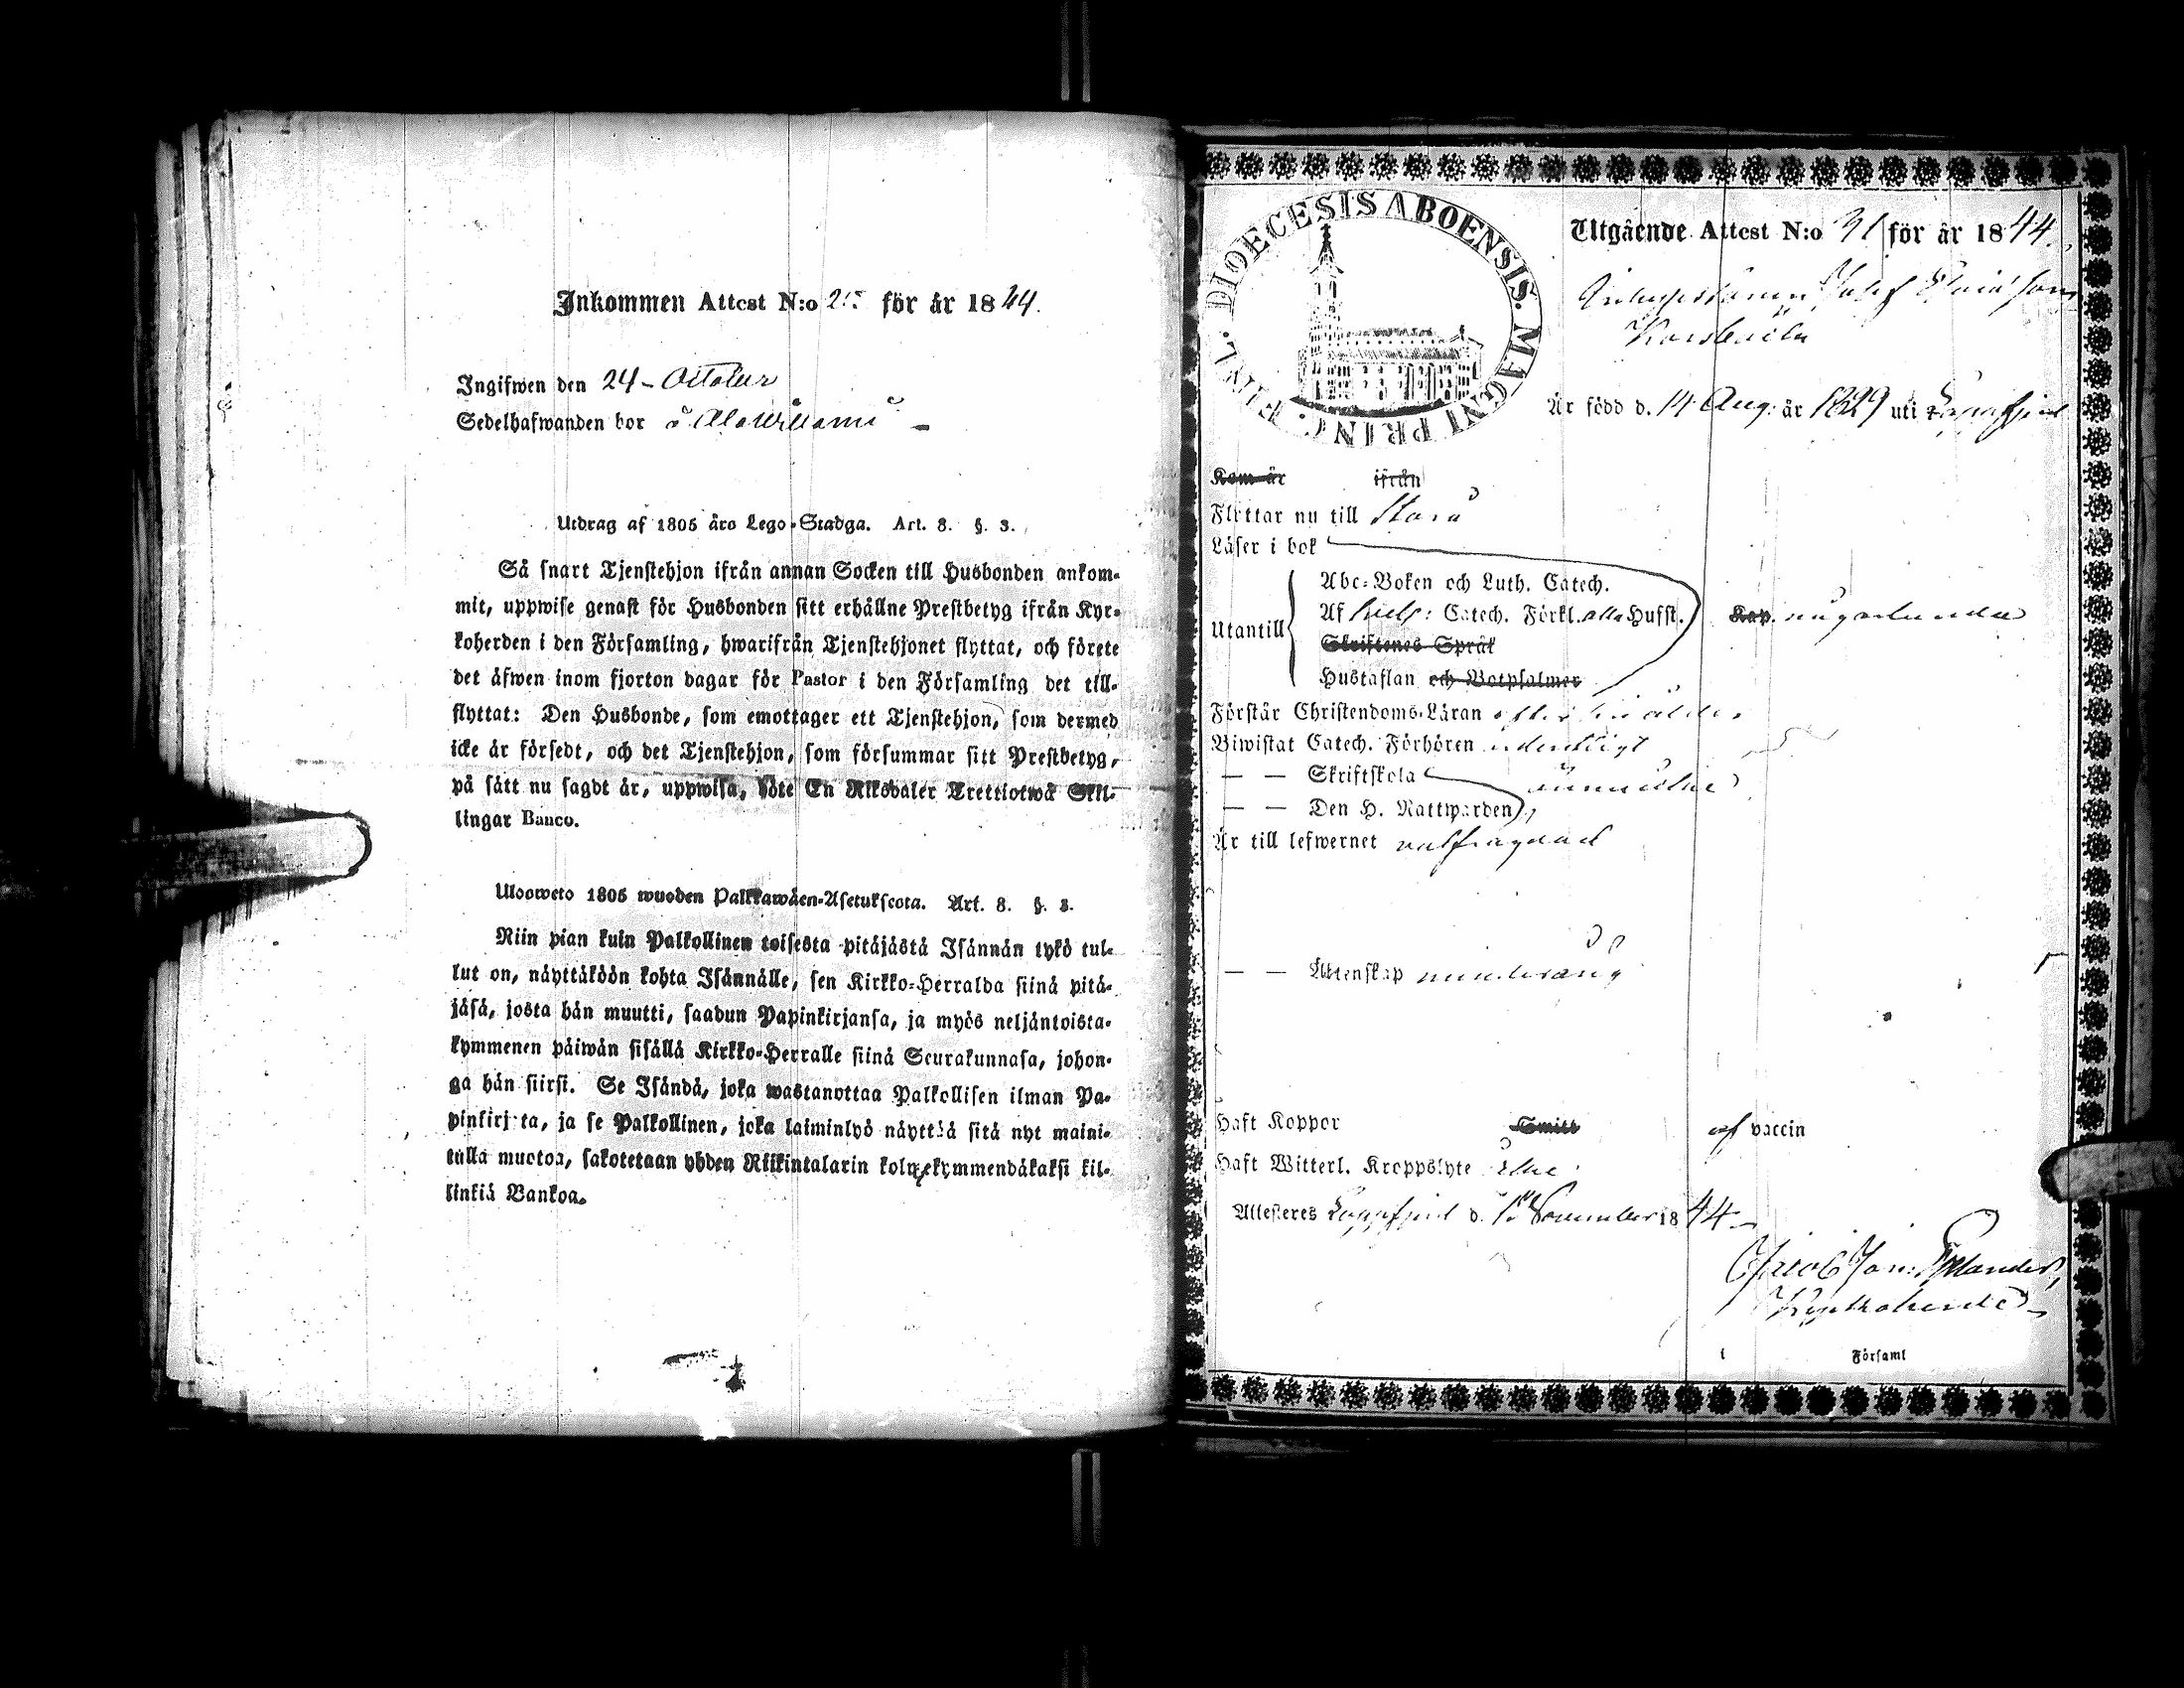 Inkommen Attest N:o för år 1844.
Ingifwen den 24 - October
Sedelhafwanden bor å
Utdrag af 1805 års Lego-Stadga. Art. 8. §. 3.
Så snart Tjenstehjon ifrån annan Socken till Husbonden ankom-
mit, uppwise genast för Husbonden sitt erhållne Prestbetyg ifrån Kyr-
koherden i den Församling, hwarifrån Tjenstehjonet flyttat, och förete
det äfwen inom fjorton dagar för Pastor i den Församling det till-
flyttat: Den Husbonde, som emottager ett Tjenstehjon, som dermed
icke är försedt, och det Tjenstehjon, som försummar sitt Prestbetyg,
på sätt nu sagdt är, uppwisa, böte En Riksdaler Trettiotwå Skil-
lingar Banco.
Ulosweto 1805 wuoden Palkkawäen-Asetuksesta. Art. 8. §. 3.
Niin pian kuin Palkollinen toisesta pitäjästä Isännän tykö tul-
lut on, näyttäköön kohta Isännälle, sen Kirkko-Herralda siinä pitä-
jäsä, josta hän muutti, saadun Papinkirjansa, ja myös neljäntoista-
kymmenen päiwän sisällä Kirkko-Herralle siinä Seurakunnasa, johon-
ga hän siirsi. Se Isändä, joka wastanottaa Palkollisen ilman Pa-
pinkirjata, ja se Palkollinen, joka laiminlyö näyttää sitä nyt maini-
tulla muotoa, sakotetaan yhden Riikintalarin kolmekymmendäkaksi kil-
linkiä Bankoa.
DIOECESIS ABOENSIS. MAGNI PRINC. FINL.
Utgående Attest N:o 31 för år 1844.
Josef
Är född d. 14 Aug. år 1829 uti Lappfjerd
Kom år ifrån
Flyttar nu till
Läser i bok
Abc-Boken och Luth. Catech.
Utantill Af Catech. Förkl. alla Husst. Kap. någorlunda
Skriftenes Språk
Hustaflan och Botpsalmer
Förstår Christendoms-Läran efter sin ålder
Biwistat Catech. Förhören ordentligt
— — Skriftskola
— — Den H. Nattwarden ännu icke
Är till lefwernet wälfrägdad
— — Äktenskap minderårig
Haft Koppor Smitt af vaccin
Haft Witterl. Kroppslyte icke
Attesteres Lappfjerd d. 1 November 1844
Jacob Joh.
Kyrkoherde
i Församl